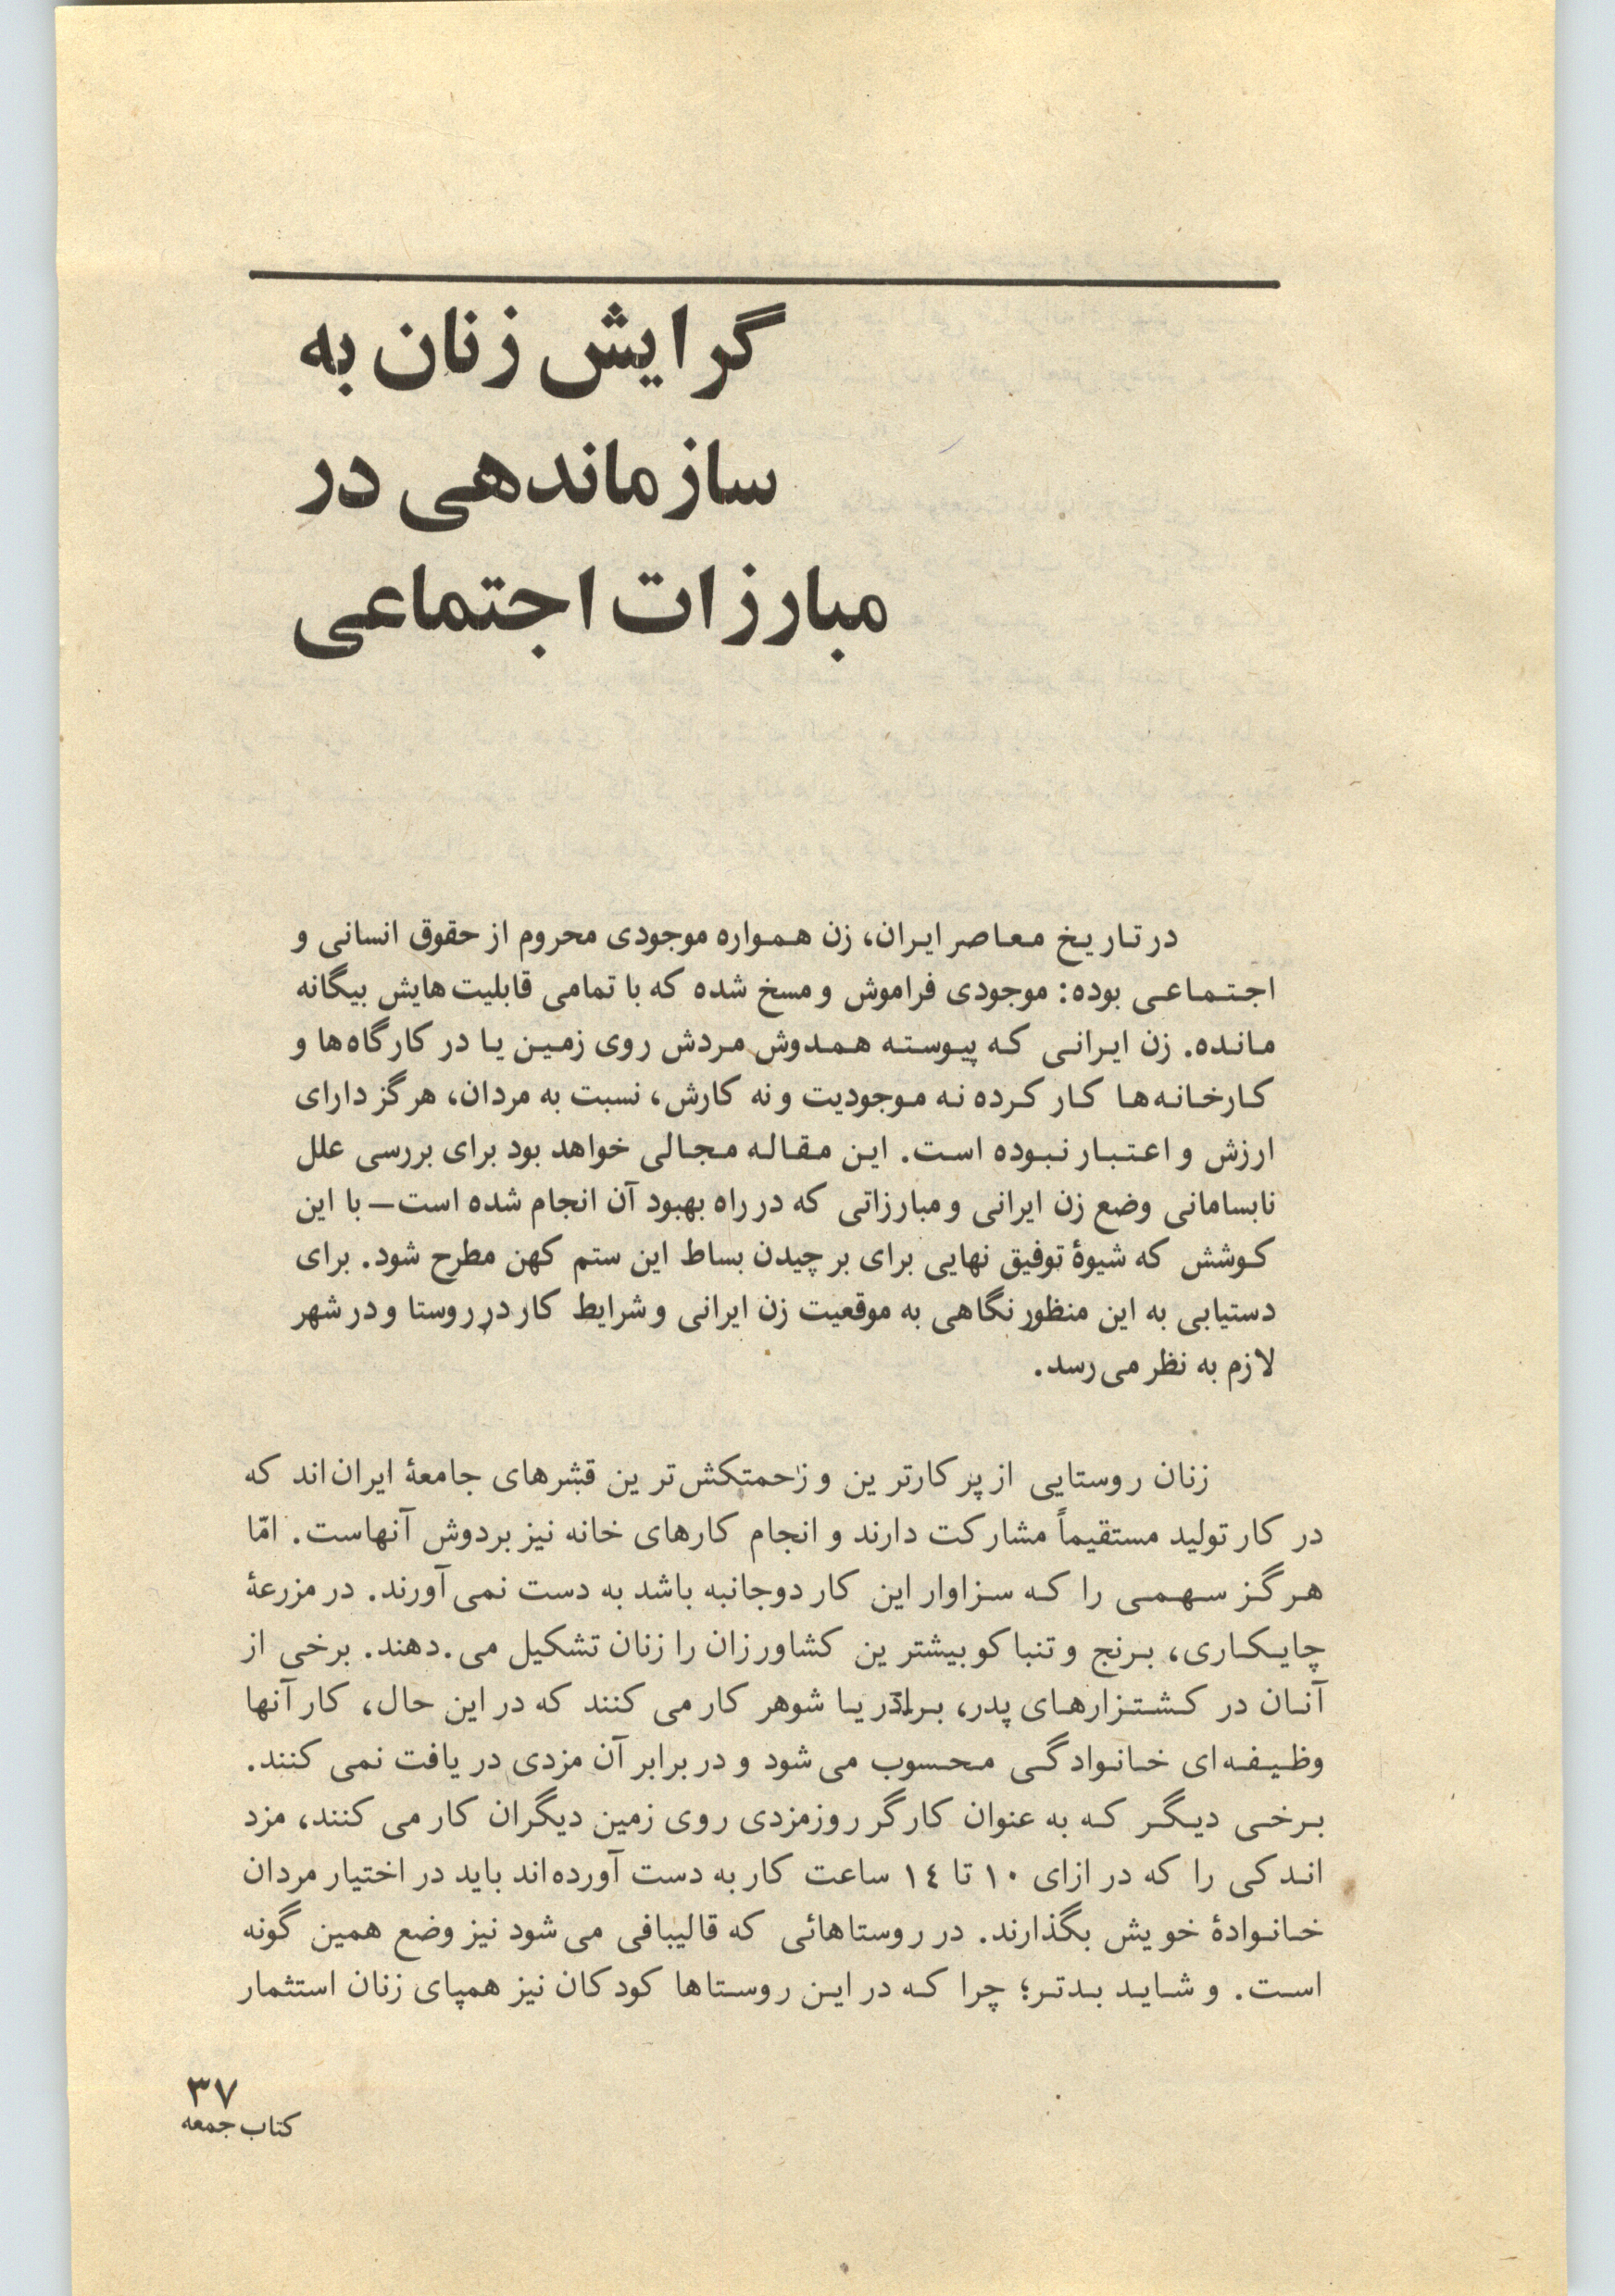 گرایش زنان به
سازماندهی در
مبارزات اجتماعی
در تاریخ معاصر ایران، زن همواره موجودی محروم از حقوق انسانی و
اجتماعی بوده: موجودی فراموش و مسخ شده که با تمامی قابلیت‌هایش بیگانه
مانده. زن ایرانی که پیوسته همدوش مردش روی زمین یا در کارگاه‌ها و
کارخانه‌ها کار کرده نه موجودیت و نه کارش، نسبت به مردان، هرگز دارای
ارزش و اعتبار نبوده است. این مقاله مجالی خواهد بود برای بررسی علل
نابسامانی وضع زن ایرانی و مبارزاتی که در راه بهبود آن انجام شده است— با این
کوشش که شیوهٔ توفیق نهایی برای برچیدن بساط این ستم کهن مطرح شود. برای
دستیابی به این منظور نگاهی به موقعیت زن ایرانی و شرایط کار در روستا و در شهر
لازم به نظر می‌رسد.
زنان روستایی از پرکارترین و زحمتکش‌ترین قشرهای جامعهٔ ایران‌اند که
در کار تولید مستقیماً مشارکت دارند و انجام کارهای خانه نیز بردوش آنهاست. امّا
هرگز سهمی را که سزاوار این کار دوجانبه باشد به دست نمی‌آورند. در مزرعهٔ
چایکاری، برنج و تنباکو بیشترین کشاورزان را زنان تشکیل می.دهند. برخی از
آنان در کشتزارهای پدر، برادر یا شوهر کار می‌کنند که در این حال، کار آنها
وظیفه‌ای خانوادگی محسوب می‌شود و در برابر آن مزدی دریافت نمی‌کنند.
برخی دیگر که به عنوان کارگر روزمزدی روی زمین دیگران کار می‌کنند، مزد
اندکی را که در ازای ۱۰ تا ۱٤ ساعت کار به دست آورده‌اند باید در اختیار مردان
خانوادهٔ خویش بگذارند. در روستاهائی که قالیبافی می‌شود نیز وضع همین گونه
است. و شاید بدتر؛ چرا که در این روستاها کودکان نیز همپای زنان استثمار
۳۷
کتاب جمعه